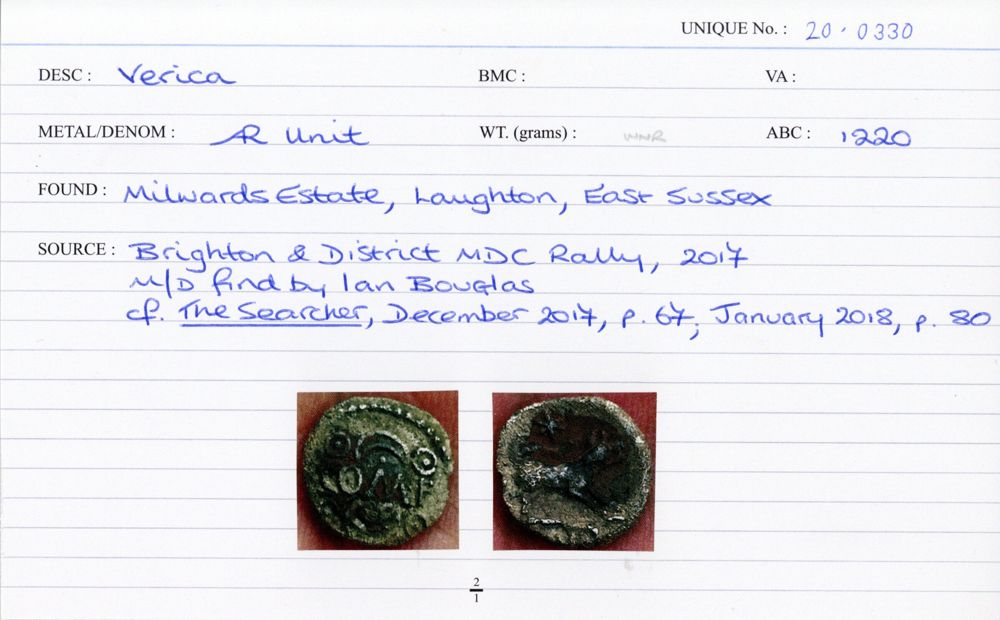 UNIQUE No. : 20·0330
DESC : Verica BMC : VA :
METAL/DENOM : AR Unit WT. (grams) : WNR ABC : 1220
FOUND : Milwards Estate, Laughton, East Sussex
SOURCE : Brighton & District MDC Rally, 2017
M/D find by Ian Bouglas
cf. The Searcher, December 2017, p. 67; January 2018, p. 80
2
1